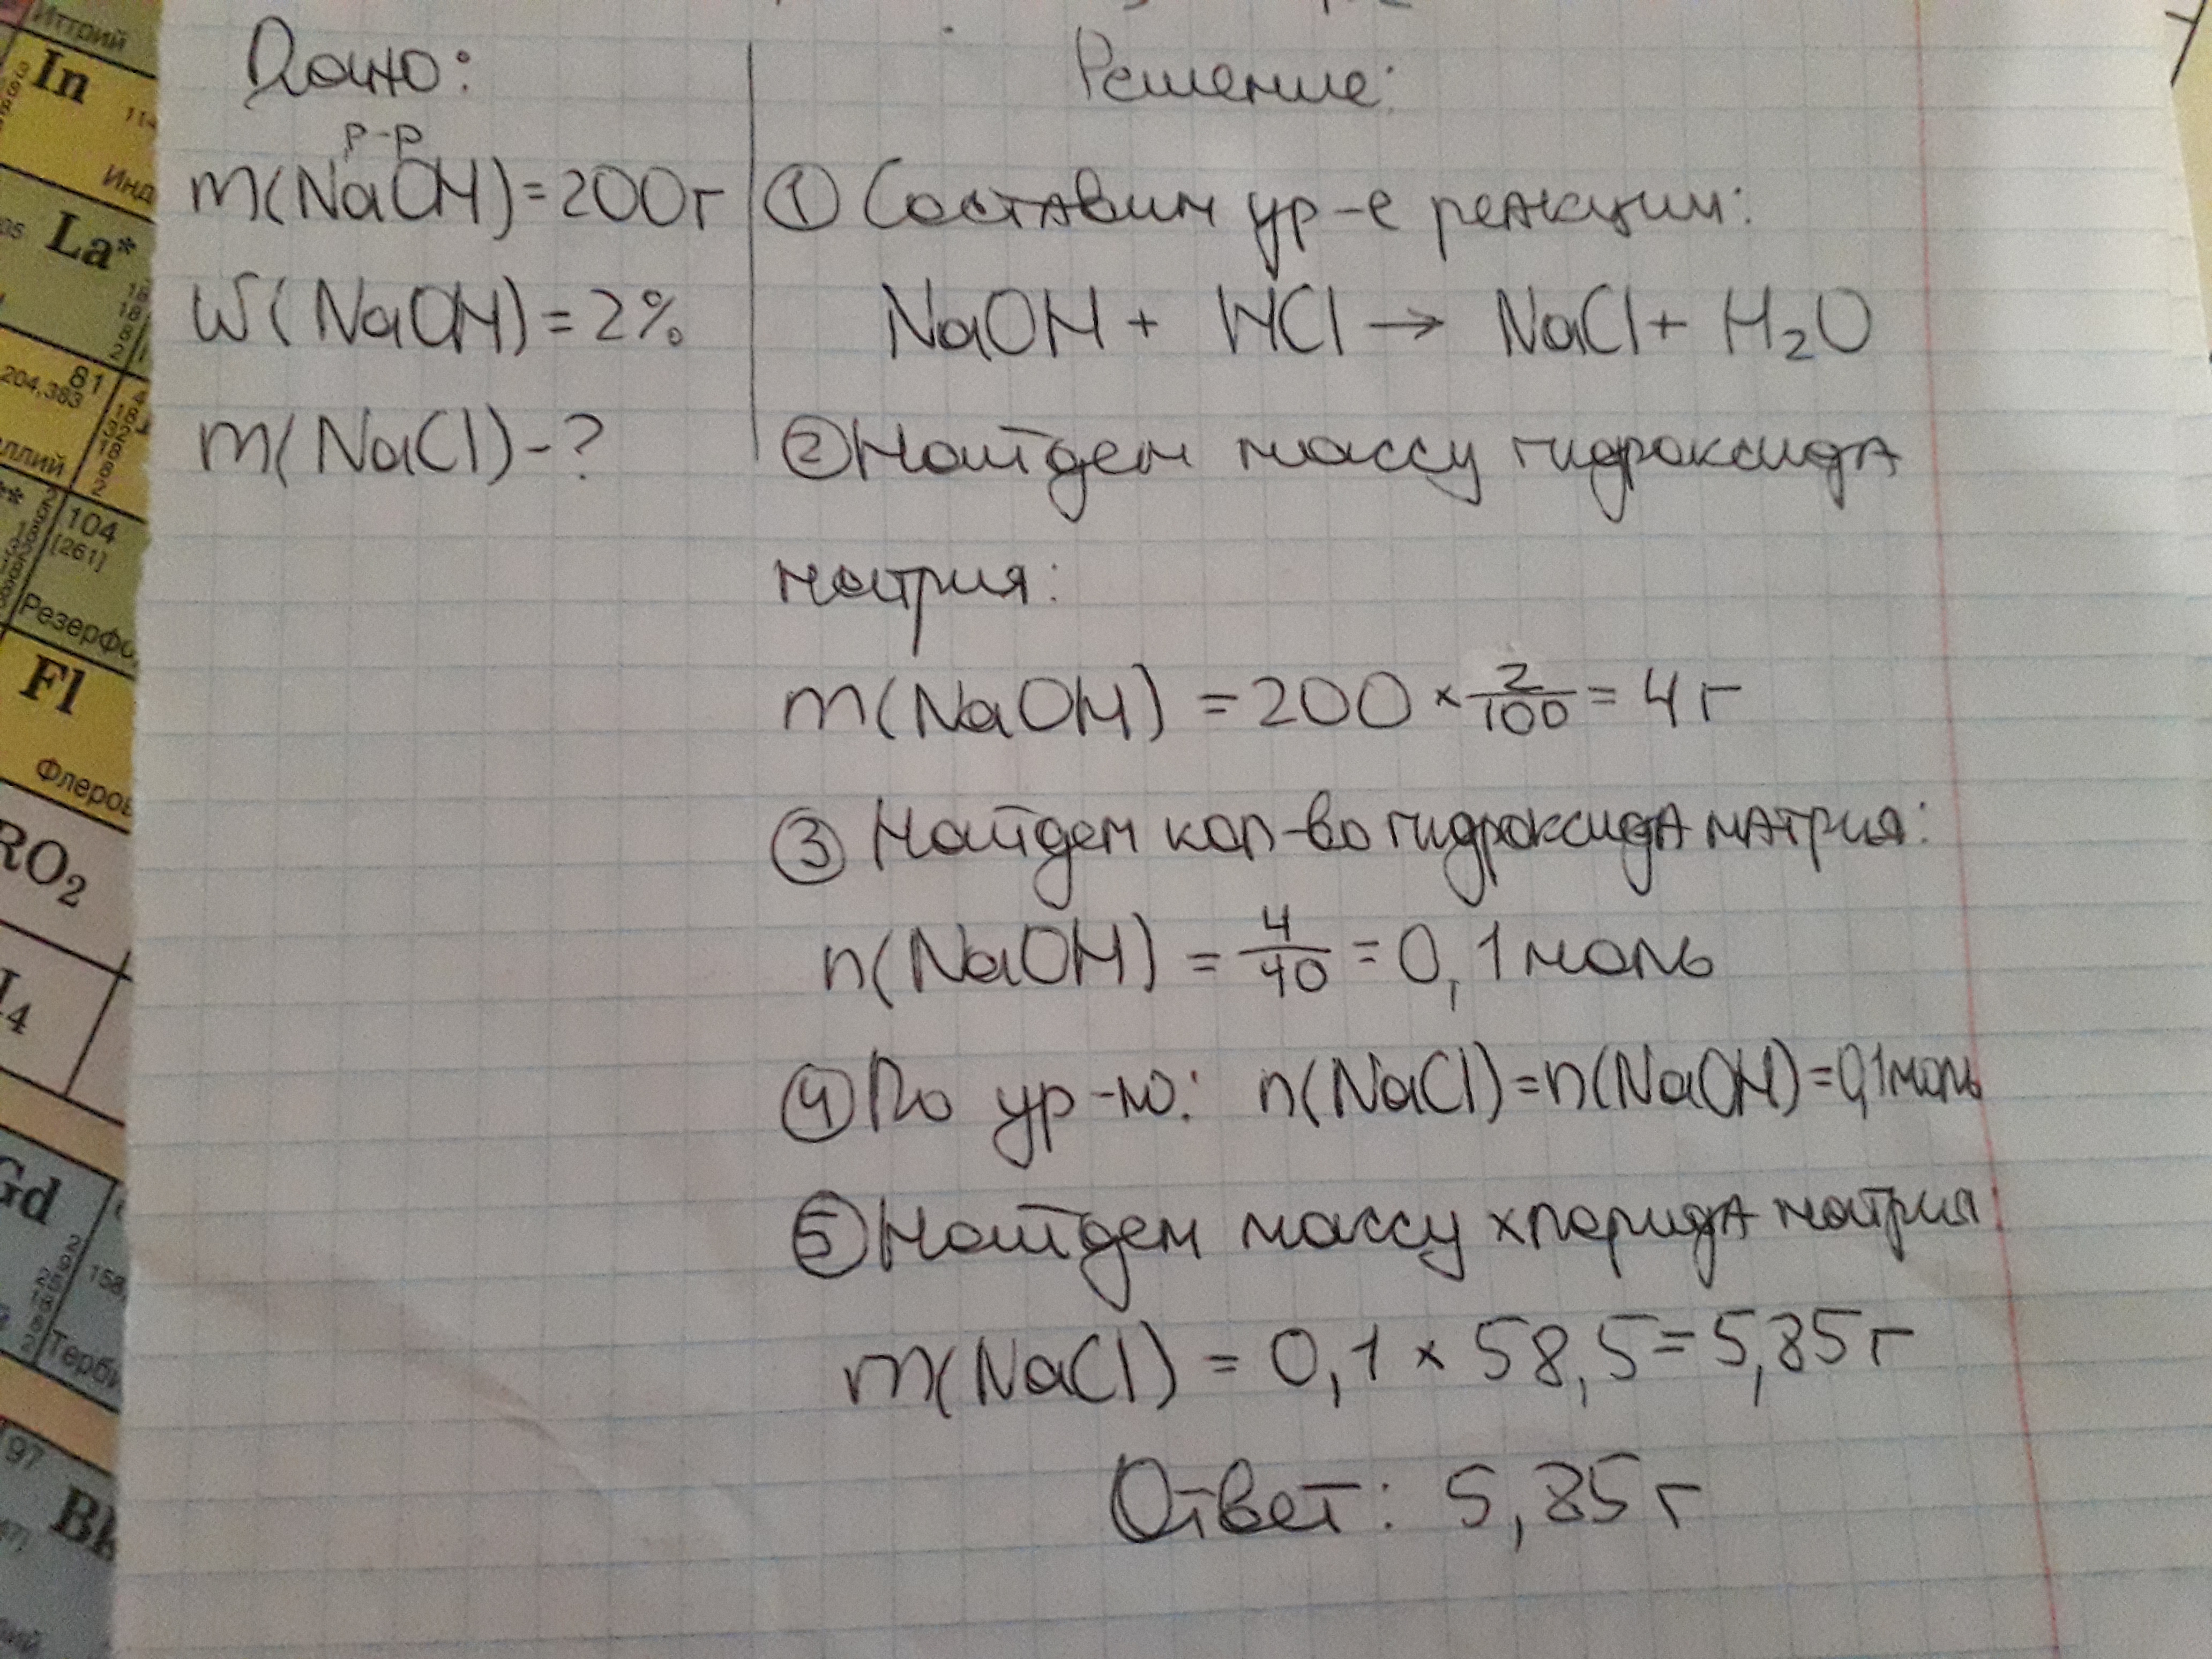 Иттрий
In
114
Инд
La*
81
204,383
ллий
104
[261]
Резерфо
Fl
Флеров
RO2
Gd
158
Терби
97
Bk
Дано:
р-р
m(NaOH)=200г
W(NaOH)=2%
m(NaCl)-?
Решение:
① Составим ур-е реакции:
NaOH + HCl → NaCl + H2O
② Найдем массу гидроксида
натрия:
m(NaOH) = 200 × 2/100 = 4 г
③ Найдем кол-во гидроксида натрия:
n(NaOH) = 4/40 = 0,1 моль
④ По ур-ю: n(NaCl)=n(NaOH)=0,1моль
⑤ Найдем массу хлорида натрия
m(NaCl) = 0,1 × 58,5 = 5,85 г
Ответ: 5,85 г